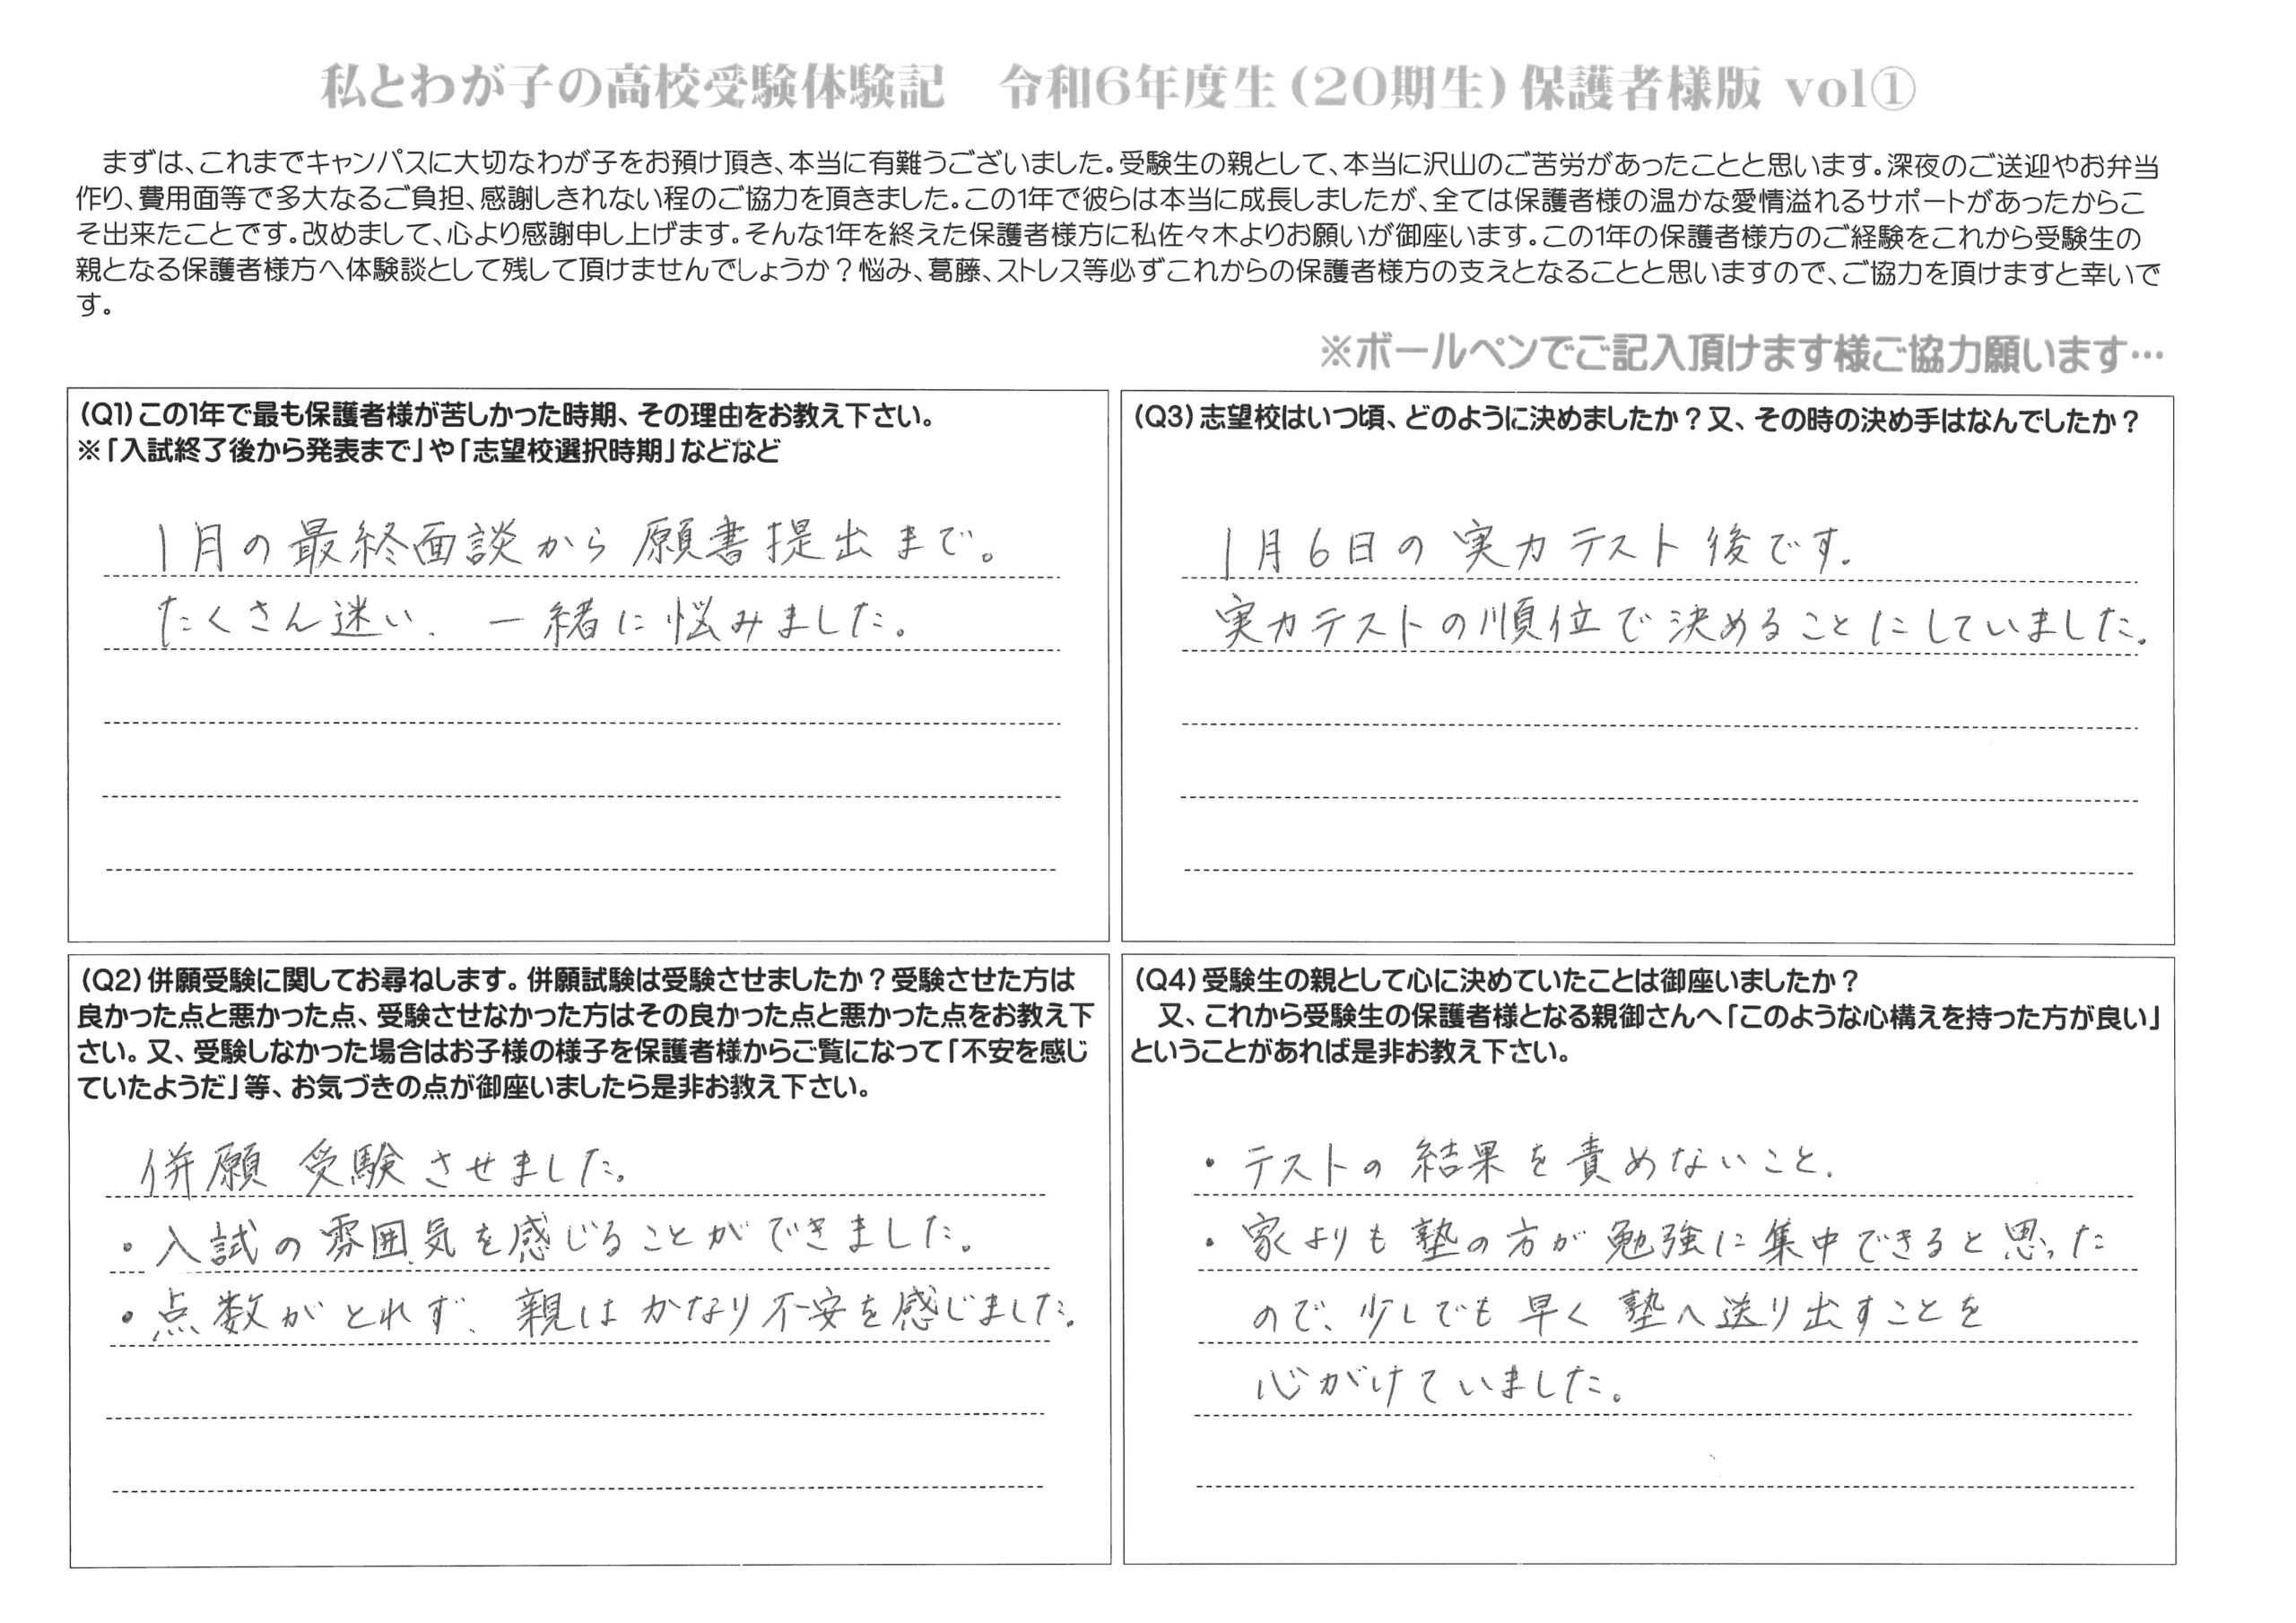 私とわが子の高校受験体験記　令和6年度生(20期生)保護者様版 vol①
まずは、これまでキャンパスに大切なわが子をお預け頂き、本当に有難うございました。受験生の親として、本当に沢山のご苦労があったことと思います。深夜のご送迎やお弁当
作り、費用面等で多大なるご負担、感謝しきれない程のご協力を頂きました。この1年で彼らは本当に成長しましたが、全ては保護者様の温かな愛情溢れるサポートがあったからこ
そ出来たことです。改めまして、心より感謝申し上げます。そんな1年を終えた保護者様方に私佐々木よりお願いが御座います。この1年の保護者様方のご経験をこれから受験生の
親となる保護者様方へ体験談として残して頂けませんでしょうか？悩み、葛藤、ストレス等必ずこれからの保護者様方の支えとなることと思いますので、ご協力を頂けますと幸いで
す。
※ボールペンでご記入頂けます様ご協力願います…
(Q1)この1年で最も保護者様が苦しかった時期、その理由をお教え下さい。
※「入試終了後から発表まで」や「志望校選択時期」などなど
1月の最終面談から願書提出まで。
たくさん迷い、一緒に悩みました。
(Q2)併願受験に関してお尋ねします。併願試験は受験させましたか？受験させた方は
良かった点と悪かった点、受験させなかった方はその良かった点と悪かった点をお教え下
さい。又、受験しなかった場合はお子様の様子を保護者様からご覧になって「不安を感じ
ていたようだ」等、お気づきの点が御座いましたら是非お教え下さい。
併願 受験させました。
・入試の雰囲気を感じることができました。
・点数がとれず、親はかなり不安を感じました。
(Q3)志望校はいつ頃、どのように決めましたか？又、その時の決め手はなんでしたか？
1月6日の実力テスト後です。
実力テストの順位で決めることにしていました。
(Q4)受験生の親として心に決めていたことは御座いましたか？
又、これから受験生の保護者様となる親御さんへ「このような心構えを持った方が良い」
ということがあれば是非お教え下さい。
・テストの結果を責めないこと。
・家よりも塾の方が勉強に集中できると思った
ので、少しでも早く塾へ送り出すことを
心がけていました。